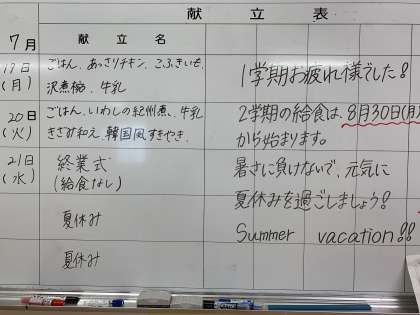 献立表
7月 献立名
19日 ごはん、あっさりチキン、こふきいも、
(月) 沢煮椀、牛乳
1学期お疲れ様でした!
20日 ごはん、いわしの紀州煮、牛乳
(火) きざみ和え、韓国風すきやき、
2学期の給食は、8月30日(月)
から始まります。
21日 終業式
(水) (給食なし)
暑さに負けないで、元気に
夏休みを過ごしましょう!
夏休み
Summer vacation!!
夏休み